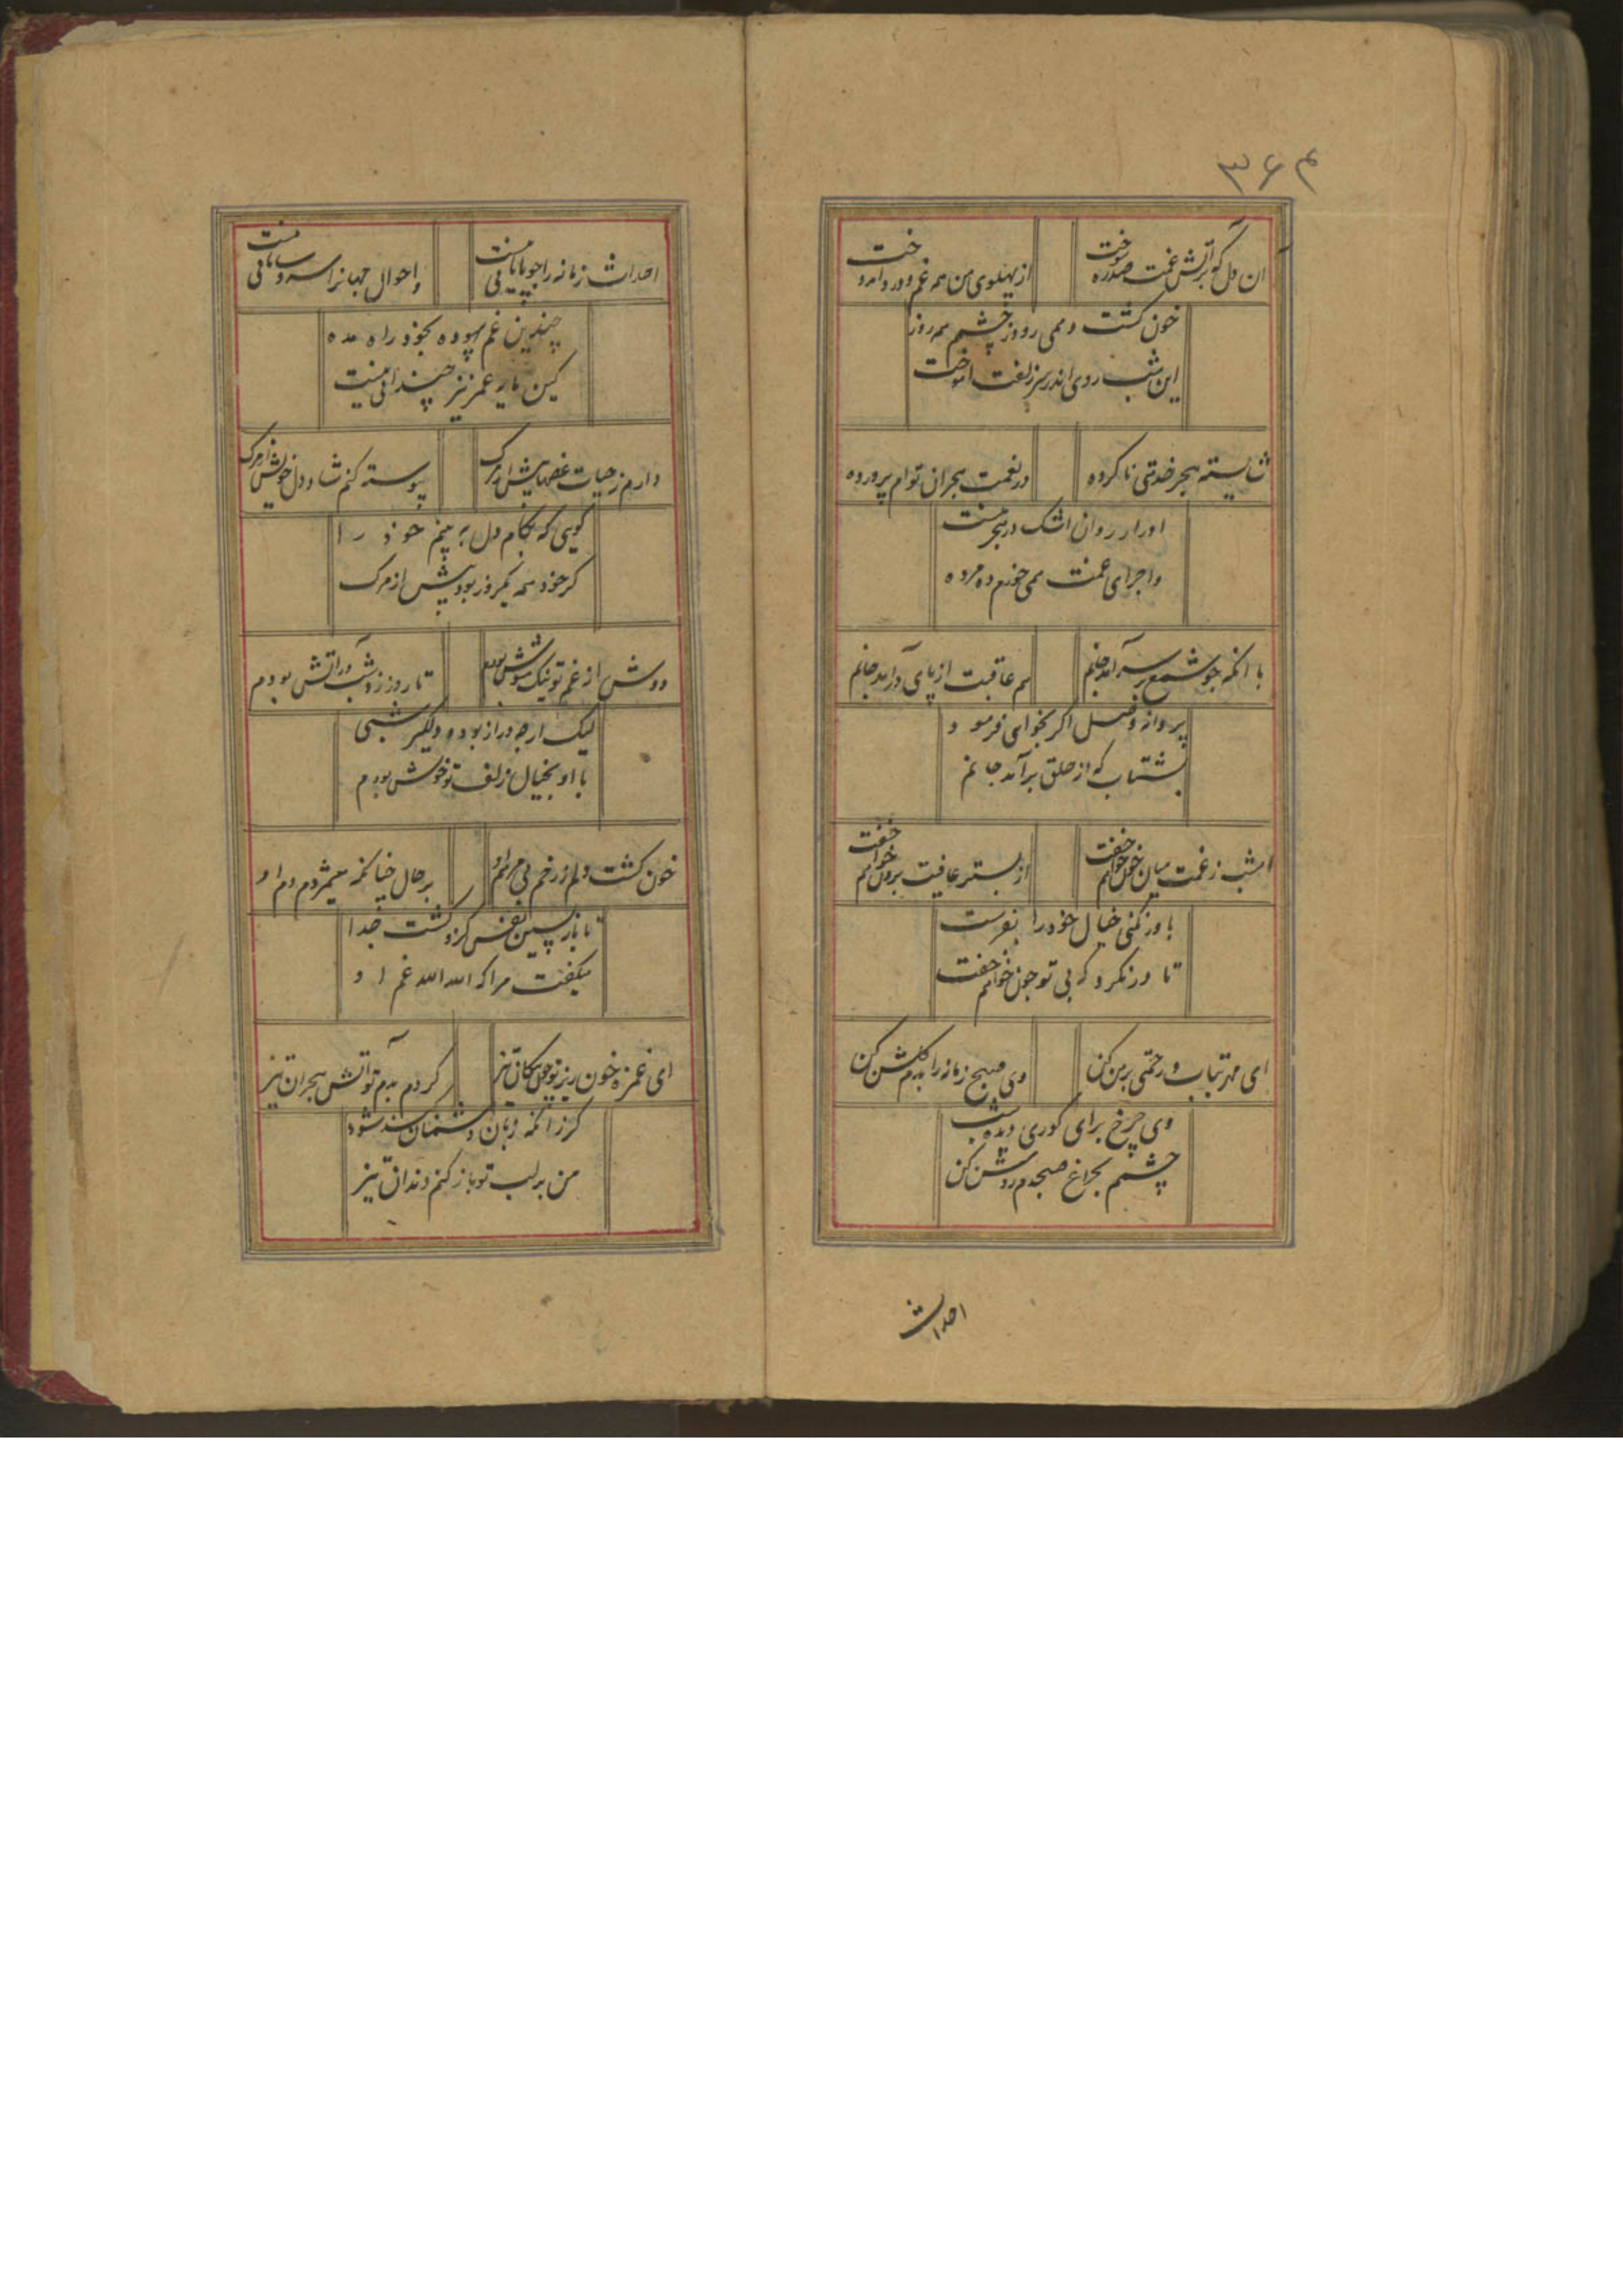 ۳۶۴
ان دل که بر آتش غمت صدره سوخت
از پهلوی من همه غم و درد اندوخت
خون کشت و همی رود ز چشم همه روز
این شب روی اندر سر زلفت اموخت
شایسته هجر خدمتی نا کرده
در نعمت هجران توام پرورده
اورار روان اشک در هجر منست
واجرای غمت همی خورم ده مرده
با انکه جو شمع بر سر آمد جانم
هم عاقبت از پای در آمد جانم
پروانه وصل اکر بخواهی فرمود
بشتاب که از حلق بر آمد جانم
امشب ز غمت میان خون خواهم خفت
از بستر عافیت برون خواهم خفت
باور نکنی خیال خود را بفرست
تا در نکرد که بی تو جون خواهم خفت
ای مهر بتاب و رحمتی بر من کن
وی صبح زمانه را بدم کلشن کن
وی چرخ برای کوری دیده شب
چشمم بجراغ صبحدم روشن کن
احداث
احداث زمانه را جو پایانی نیست
و احوال جهانرا سر و سامانی نیست
چندین غم بیهوده بخود راه مده
کین مایه عمر نیز چندانی نیست
دارم ز حیات غصها بیش از مرک
پیوسته کنم شاد دل خویش از مرک
کویی که بکام دل به بینم خود را
کر خود همه یکروز بود پیش از مرک
دوش از غم تو نیک مشوش بودم
تا روز ز دو شب در آتش بودم
لیک ارچه دراز بود و دلکیر شبی
با او بخیال زلف تو خوش بودم
خون کشت دلم ز زخم بی مرهم او
بر حال چنانکه میشمردم دم او
تا باز پسین نفس کزو کشت جدا
میکفت مرا که الله الله غم او
ای غمزه خون ریز تو چون پیکان تیز
کردم بدم تو آتش هجران تیز
کر زانکه زبان دشمنان شود
من بر لب تو باز کنم دندان تیز